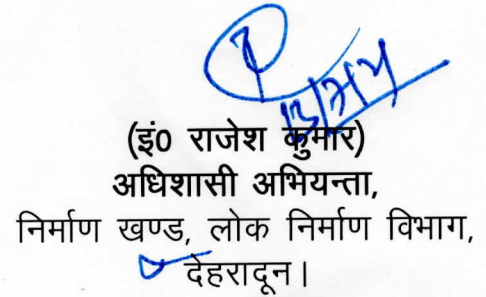 (इं0 राजेश कुमार)
अधिशासी अभियन्ता,
निर्माण खण्ड, लोक निर्माण विभाग,
देहरादून।